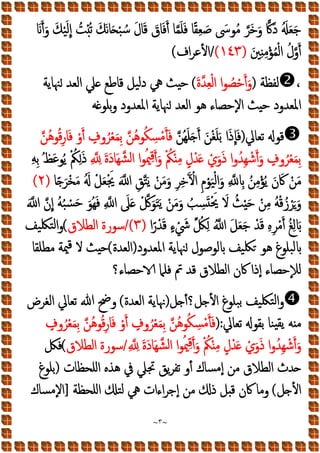 جَعَلَهُ دَكًّا وَخَرَّ مُوسَى صَعِقًا فَلَمَّا أَفَاقَ قَالَ سُبْحَانَكَ تُبْتُ إِلَيْكَ وَأَنَا
أَوَّلُ الْمُؤْمِنِينَ (١٤٣)/الأعراف)
، ❷ لفظة (وَأَحْصُوا الْعِدَّةَ) حيث هي دليل قاطع علي العد لنهاية
المعدود حيث الإحصاء هو العد لنهاية المعدود وبلوغه
❸ قوله تعالي(فَإِذَا بَلَغْنَ أَجَلَهُنَّ فَأَمْسِكُوهُنَّ بِمَعْرُوفٍ أَوْ فَارِقُوهُنَّ
بِمَعْرُوفٍ وَأَشْهِدُوا ذَوَيْ عَدْلٍ مِنْكُمْ وَأَقِيمُوا الشَّهَادَةَ لِلَّهِ ذَلِكُمْ يُوعَظُ بِهِ
مَنْ كَانَ يُؤْمِنُ بِاللَّهِ وَالْيَوْمِ الْآَخِرِ وَمَنْ يَتَّقِ اللَّهَ يَجْعَلْ لَهُ مَخْرَجًا (٢)
وَيَرْزُقْهُ مِنْ حَيْثُ لَا يَحْتَسِبُ وَمَنْ يَتَوَكَّلْ عَلَى اللَّهِ فَهُوَ حَسْبُهُ إِنَّ اللَّهَ
بَالِغُ أَمْرِهِ قَدْ جَعَلَ اللَّهُ لِكُلِّ شَيْءٍ قَدْرًا (٣)/سورة الطلاق)والتكليف
بالبلوغ هو تكليف بالوصول لنهاية المعدود(العدة)حيث لا قيمة مطلقا
للإحصاء إذا كان الطلاق قد تم فلما الاحصاء؟
❹ والتكليف ببلوغ الأجل؟أجل(نهاية العدة) وضح الله تعالي الغرض
منه يقينا بقوله تعالي:(فَأَمْسِكُوهُنَّ بِمَعْرُوفٍ أَوْ فَارِقُوهُنَّ بِمَعْرُوفٍ
وَأَشْهِدُوا ذَوَيْ عَدْلٍ مِنْكُمْ وَأَقِيمُوا الشَّهَادَةَ لِلَّهِ/سورة الطلاق)فكل
حدث الطلاق من إمساك أو تفريق تجلي في هذه اللحظات (بلوغ
الأجل) وما كان قبل ذلك من إجراءات هي لتلك اللحظة [الإمساك
~٣~